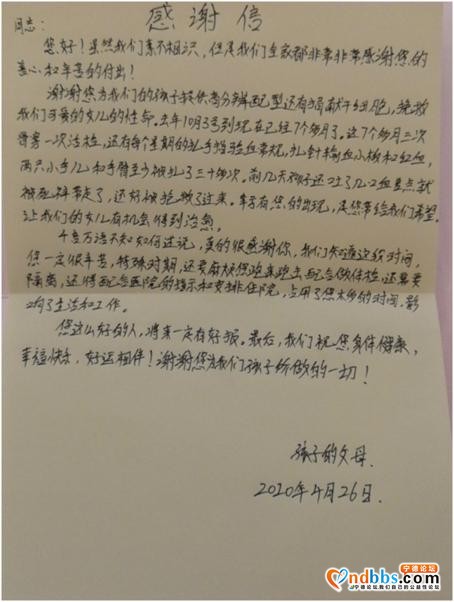 感谢信
同志：
您好！虽然我们素不相识，但是我们全家都非常非常感谢您的
善心和辛苦的付出！
谢谢您为我们的孩子提供高分辨配型还有捐献干细胞，挽救
我们可爱的女儿的性命。去年10月3号到现在已经7个多月了。这7个多月三次
骨穿一次活检，还有每个星期的扎手指验血常规，扎针输血小板和红血，
两只小手儿和手臂至少被扎了三十多次。前几天孩子还吐了几口血差点就
被死神带走了，还好被抢救了过来。幸好有您的出现，是您带给我们希望。
让我们的女儿有机会得到治愈。
千言万语不知如何述说，真的很感谢你，我们知道这段时间，
您一定很辛苦，特殊时期，还要麻烦您跑来跑去配合做体检，还需要
隔离，还得配合医院的指示和安排住院，占用了您太多的时间，影
响了生活和工作。
您这么好的人，将来一定有好报。最后，我们祝您身体健康，
幸福快乐，好运相伴！谢谢您为我们孩子所做的一切！
孩子的父母.
2020年4月26日.
宁德论坛
ndbbs.com
宁德论坛我们自己的公益性论坛